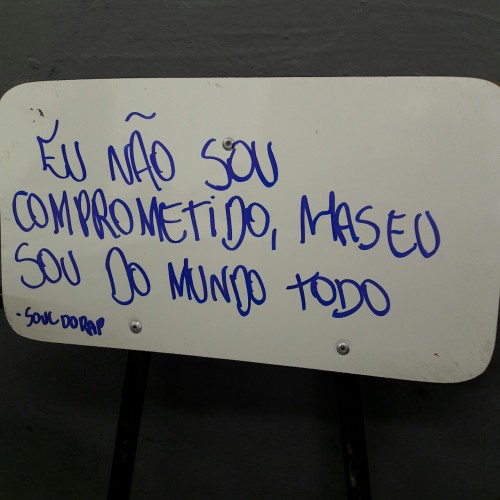 EU NÃO SOU
COMPROMETIDO, MAS EU
SOU DO MUNDO TODO
- SOUL DO RAP